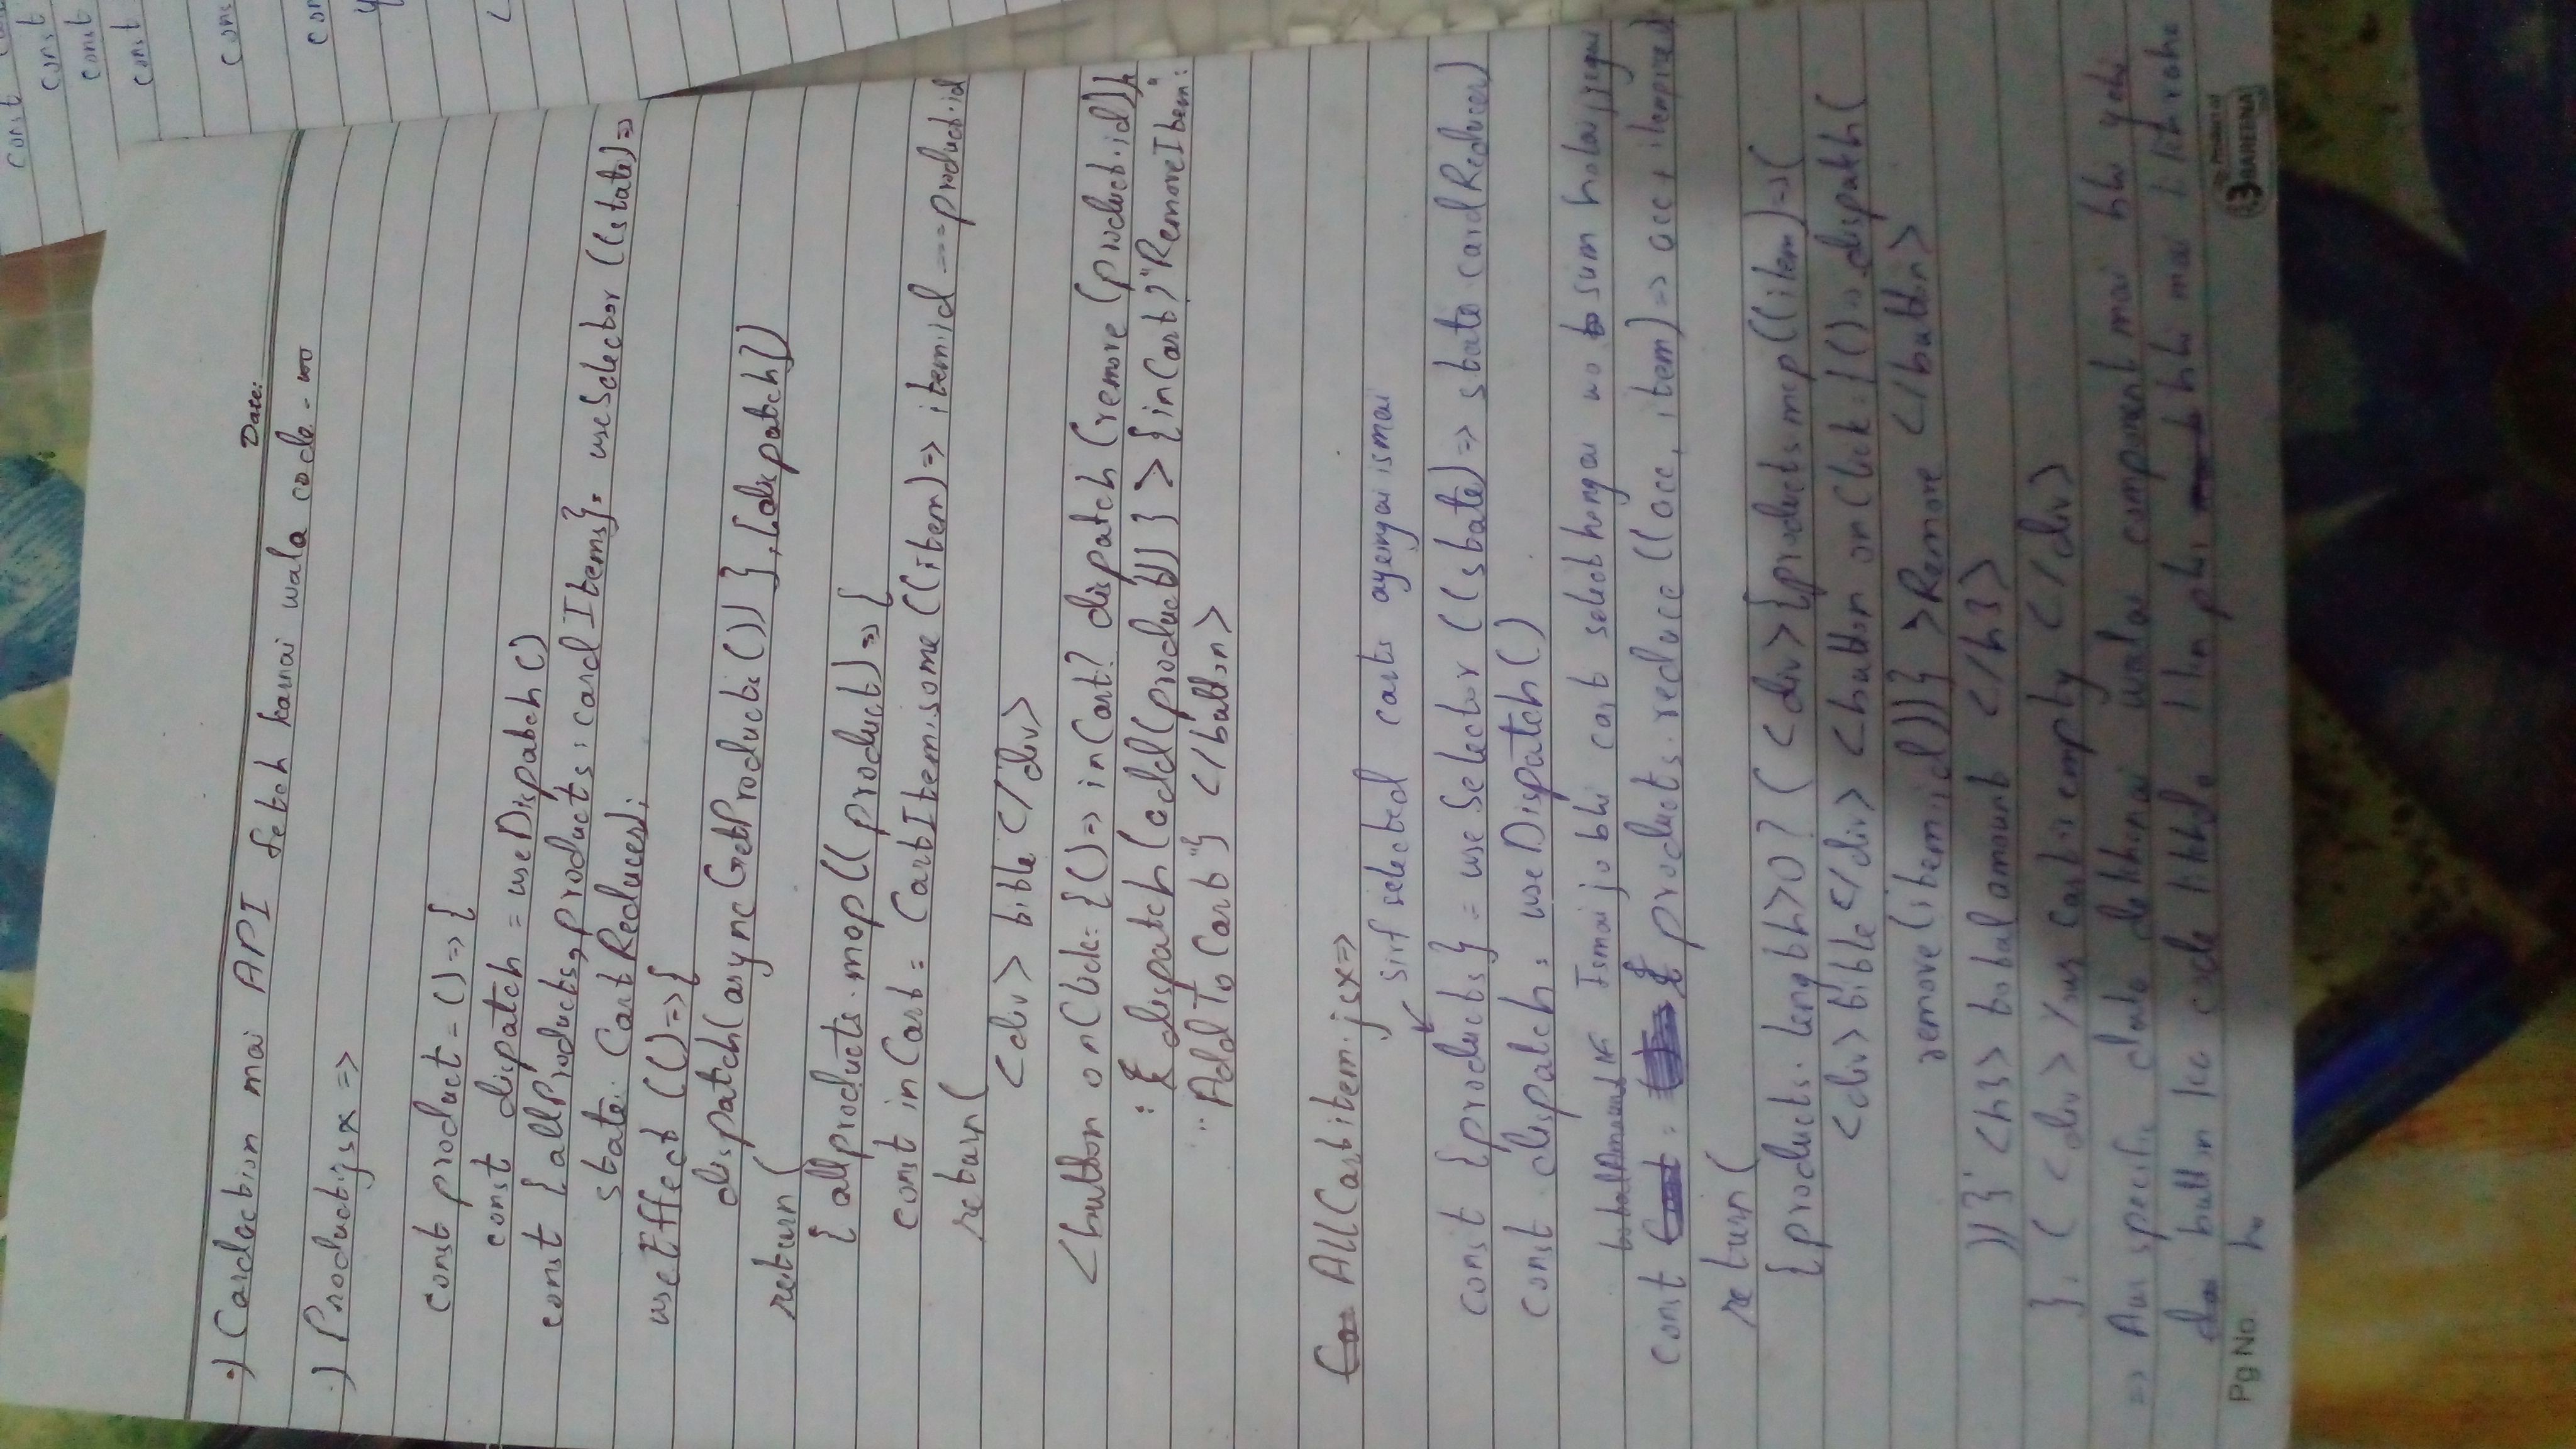 const
const
const
const
cons
con
Date:
•) Cardaction mai API fetch karnai wala code -
•) Product.jsx =>
const product = () => {
const dispatch = useDispatch()
const {allProducts, products: cardItems} = useSelector ((state) =>
state. CartReducer);
useEffect (() => {
dispatch(asyncGetProducts()) }, [dispatch])
return (
{ allproducts.map((product) => {
const inCart = CartItem.some ((item) => item.id === product.id
return (
<div> title </div>
<button onClick = {() => inCart? dispatch (remove (product.id))}
: { dispatch (add(product)) } > {inCart? "RemoveItem" :
"Add To Cart"} </button>
AllCartitem.jsx =>
sirf selected carts ayeingai ismai
const {products} = useSelector ((state) => state.cardReducer)
const dispatch = useDispatch()
totalAmount Ismai jo bhi cart select hongai wo sum hota jayegai
const = { products.reduce ((acc, item) => acc + item.price
return (
{products.length>0 ? ( <div> {products.map((item) => (
<div> title </div> <button onClick = {() => dispatch (
remove(item.id))} > Remove </button>
))} <h3> total amount </h3>
} : ( <div> Your Cart is empty </div>
=> Aur specific data dekhanai walai component mai bhi yehi
button ka code likhdo bhi mai likh raha
Pg No. ho
Product of
BAREENA